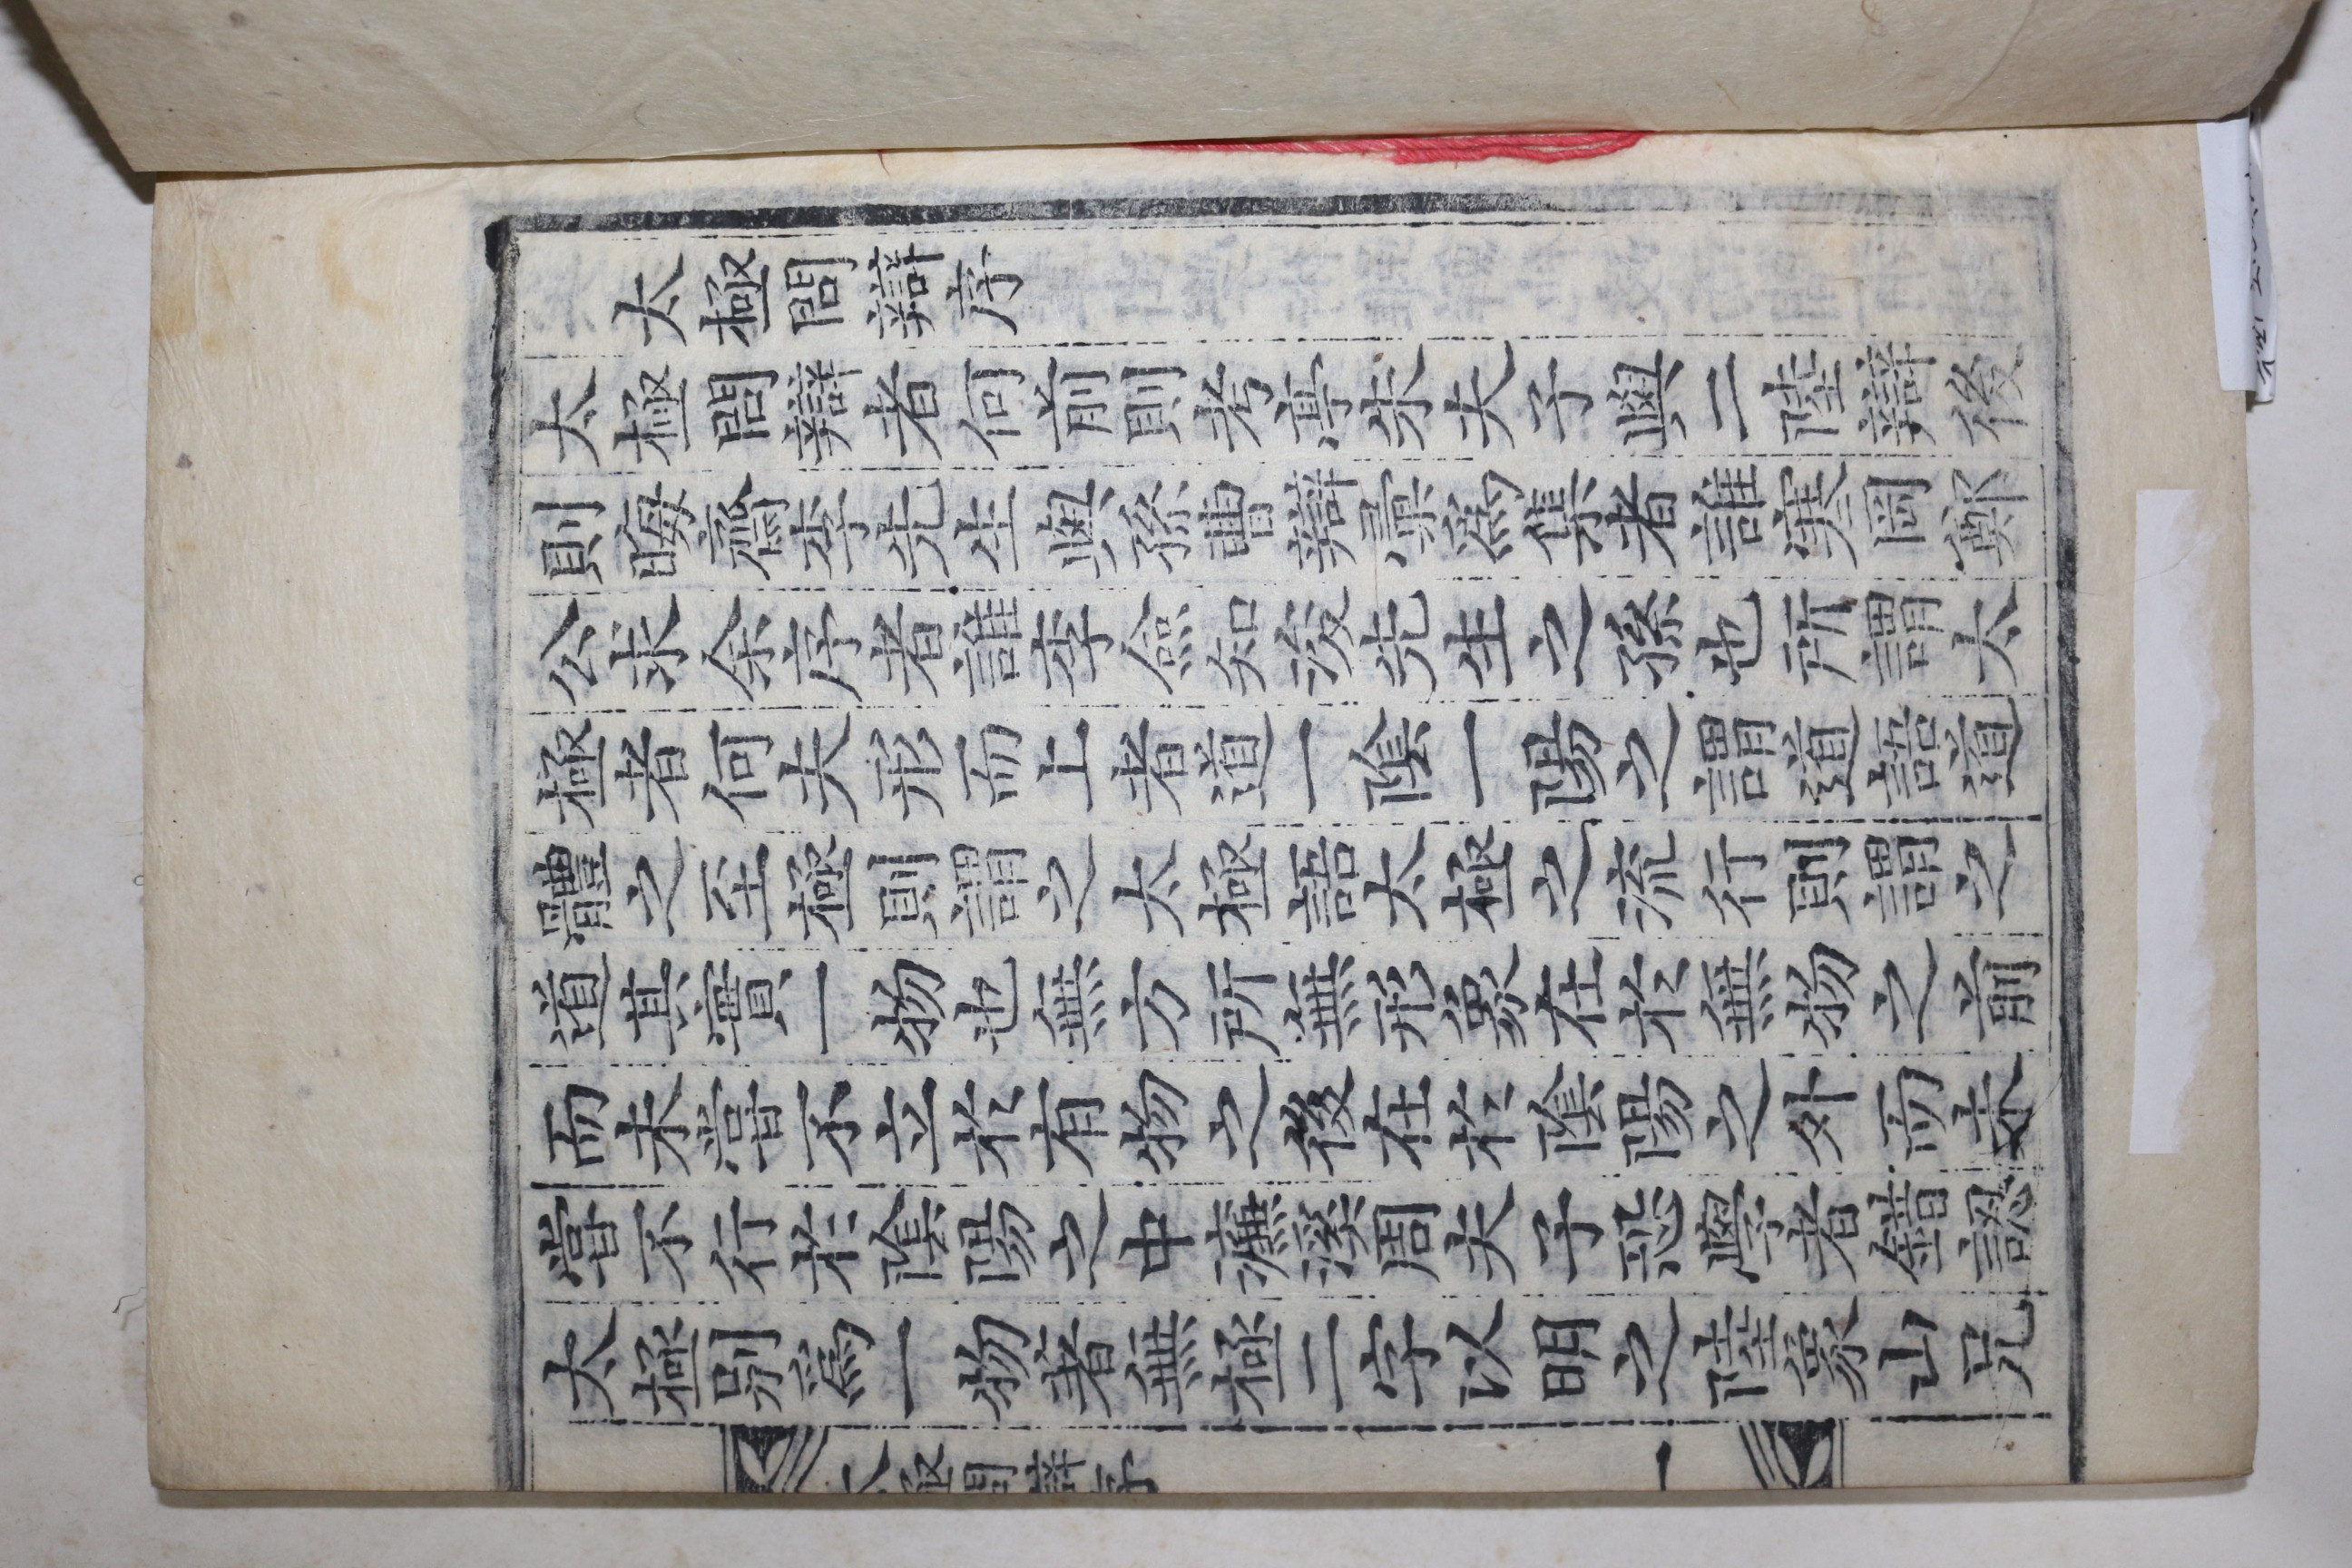 太極問辯序
太極問辯者何前則考亭朱夫子與二陸辯後
則晦齋李先生與孫曹辯彙爲集者誰寒岡鄭
公求余序者誰李僉知浚先生之孫也所謂太
極者何夫形而上者道一陰一陽之謂道語道
體之至極則謂之太極語太極之流行則謂之
道其實一物也無方所無形象在於無物之前
而未嘗不立於有物之後在於陰陽之外而未
嘗不行於陰陽之中濂溪周夫子恐學者錯認
太極別爲一物著無極二字以明之陸象山兄
太極問辯序
一